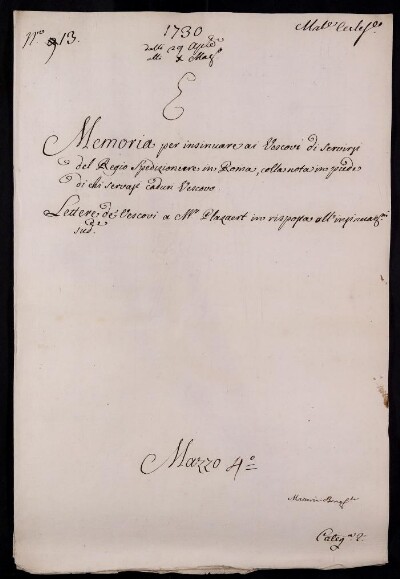 N.ro 9 13.
1730
Mat.e Eccles.che
dalli 29 Aprile
alli X Mag.o
E
Memoria per insinuare ai Vescovi di servirsi
del Regio Spedizioniere in Roma, colla nota in piede
di chi servasi cadun Vescovo
Lettere de' Vescovi a M.r Plazaert in risposta all'insinuaz.ni
sud.e
Mazzo 4.o
Categ.a 2.